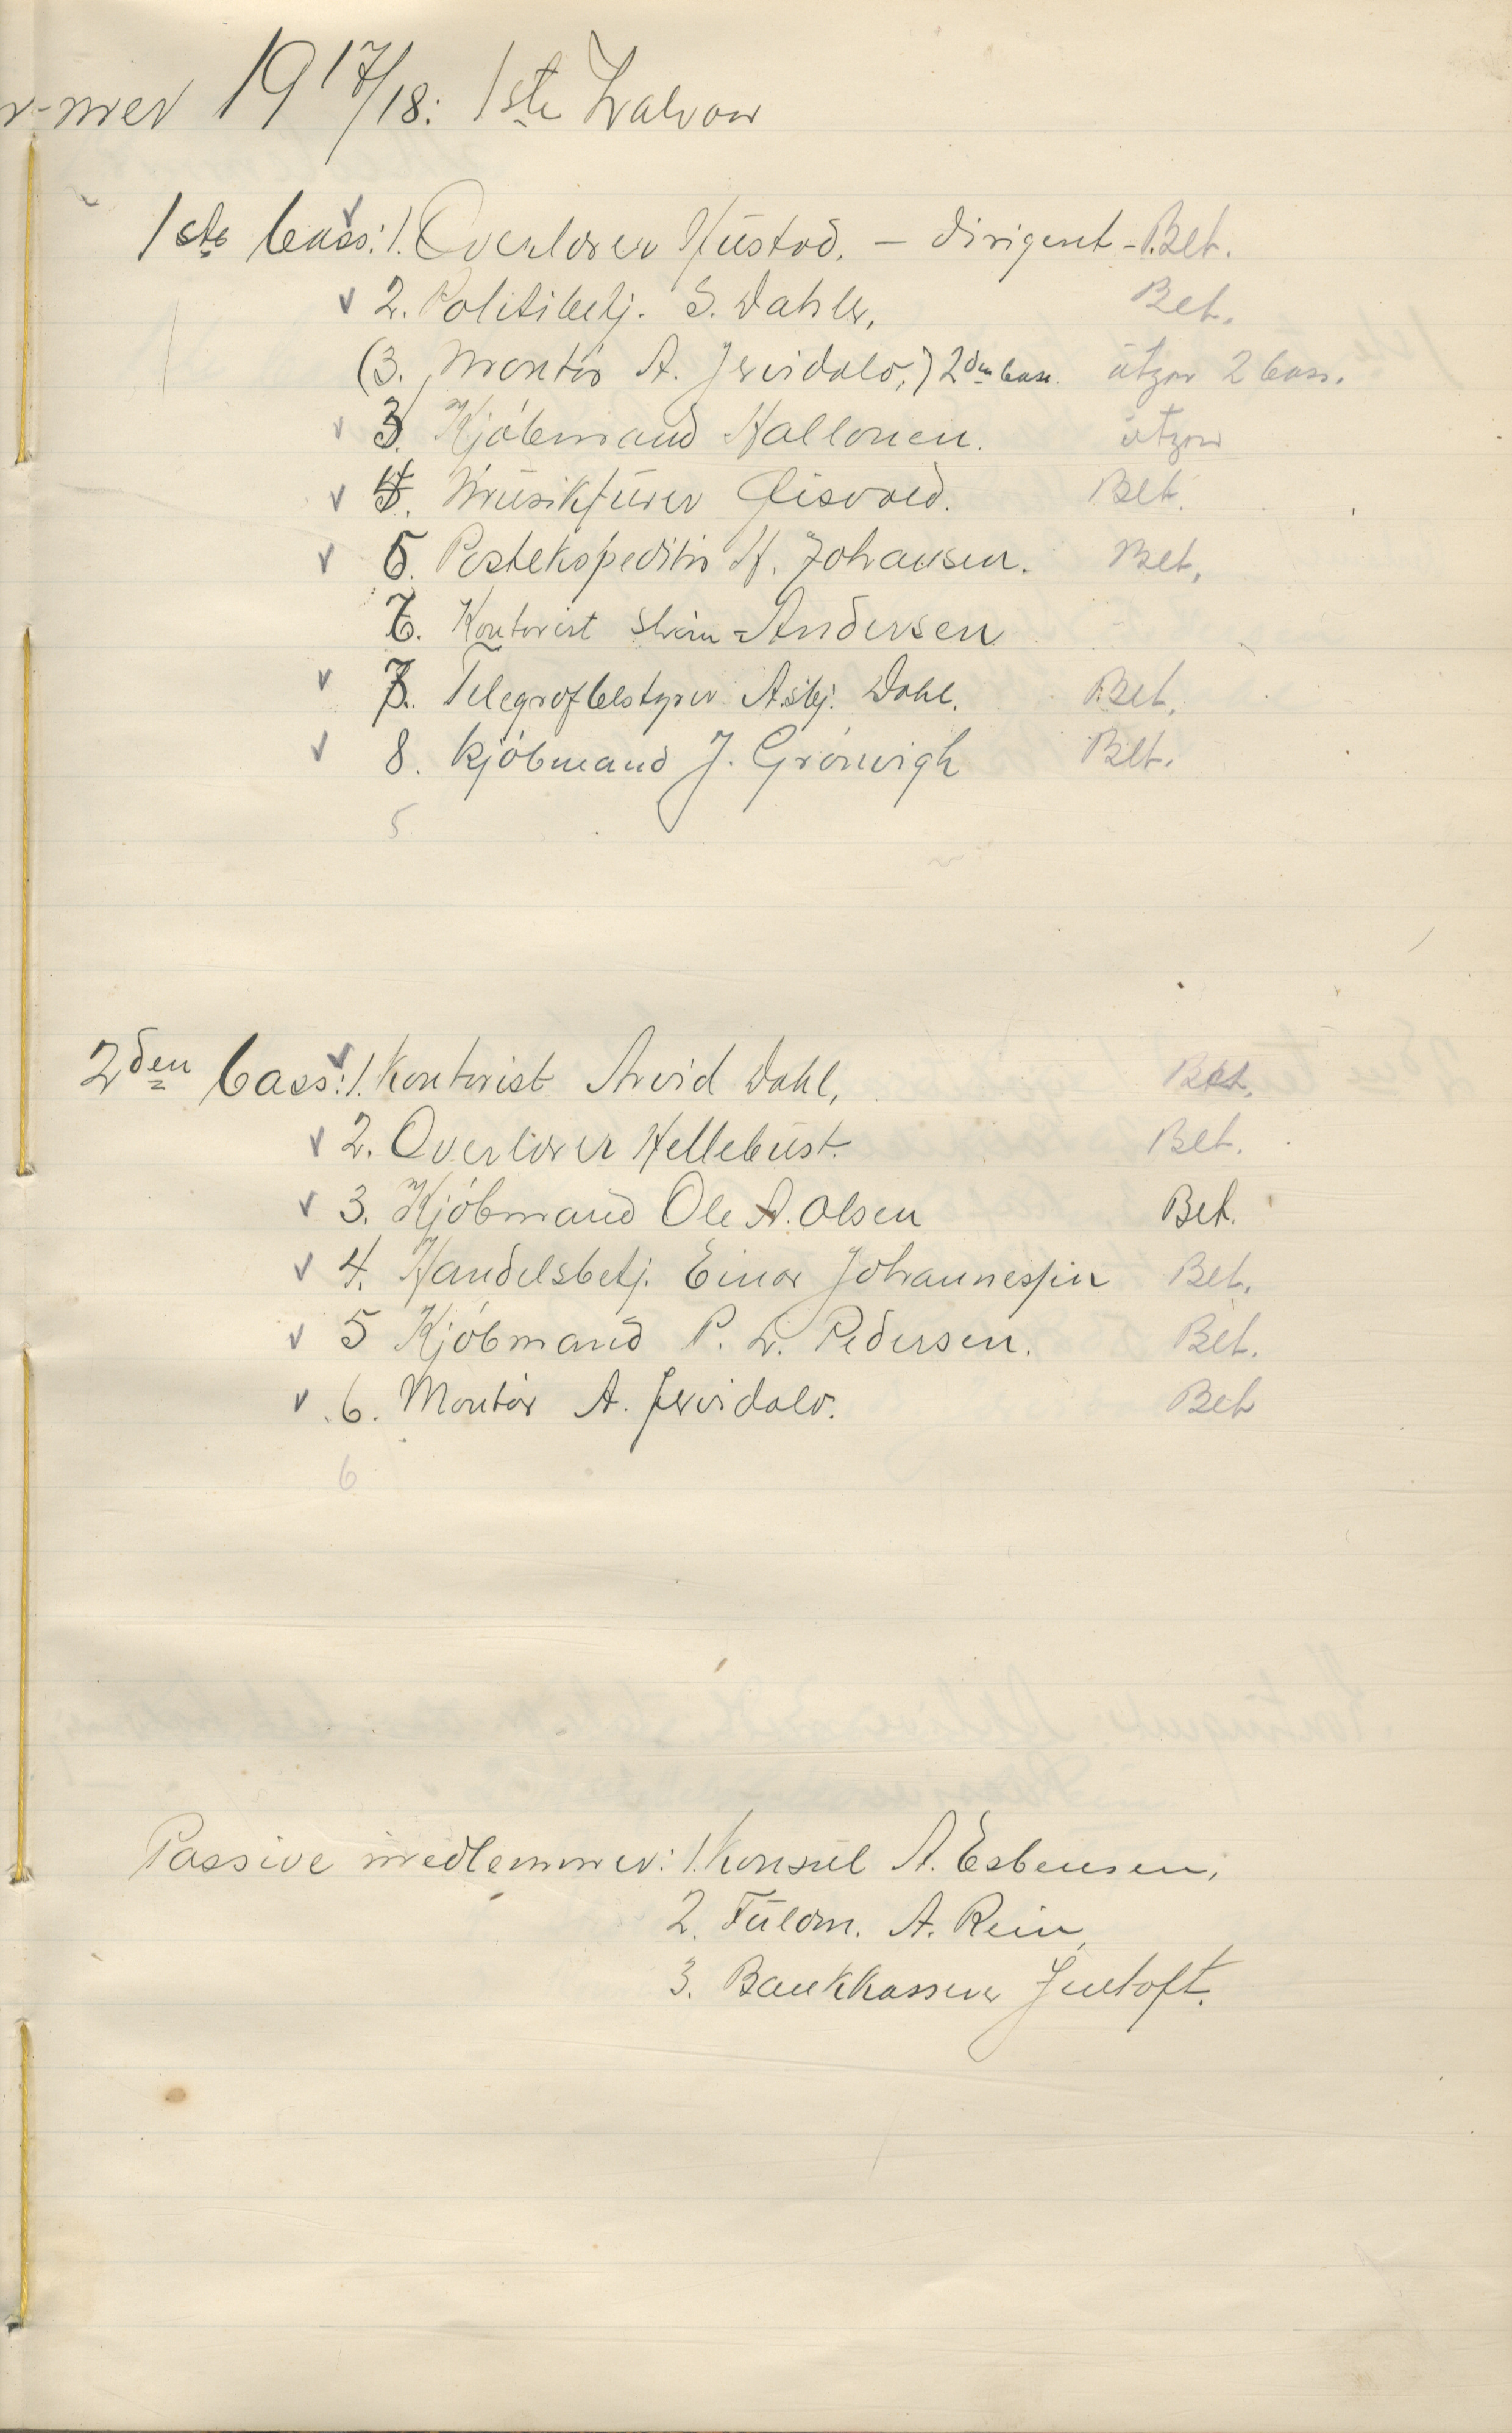 r-mer 19 17/18: 1ste Halvaar
1ste bass: 1. Overlærer Hustad. - dirigent - Bet.
2. Politibetj. S. Dahle, Bet.
(3. Montör A. Jervidalo,) 2den bass. utgaar 2 bass.
3. Kjöbmand Hallonen. utgaar
4. Musikfürer Qvisvold. Bet.
5. Postekspeditör H. Johansen. Bet.
6. Kontorist Ström-Andersen
7. Telegrafbestyrer Asbj. Dahl. Bet.
8. Kjöbmand J. Grönvigh Bet.
5
2den bass: 1. Kontorist Arvid Dahl, Bet.
2. Overlærer Hellebust. Bet.
3. Kjöbmand Ole A. Olsen Bet.
4. Handelsbetj. Einar Johannessen Bet.
5 Kjöbmand P. L. Pedersen. Bet.
6. Montör A. Jervidalo. Bet
6
Passive medlemmer: 1. Konsul A. Esbensen,
2. Fuldm. A. Rein,
3. Bankkasserer Jentoft.